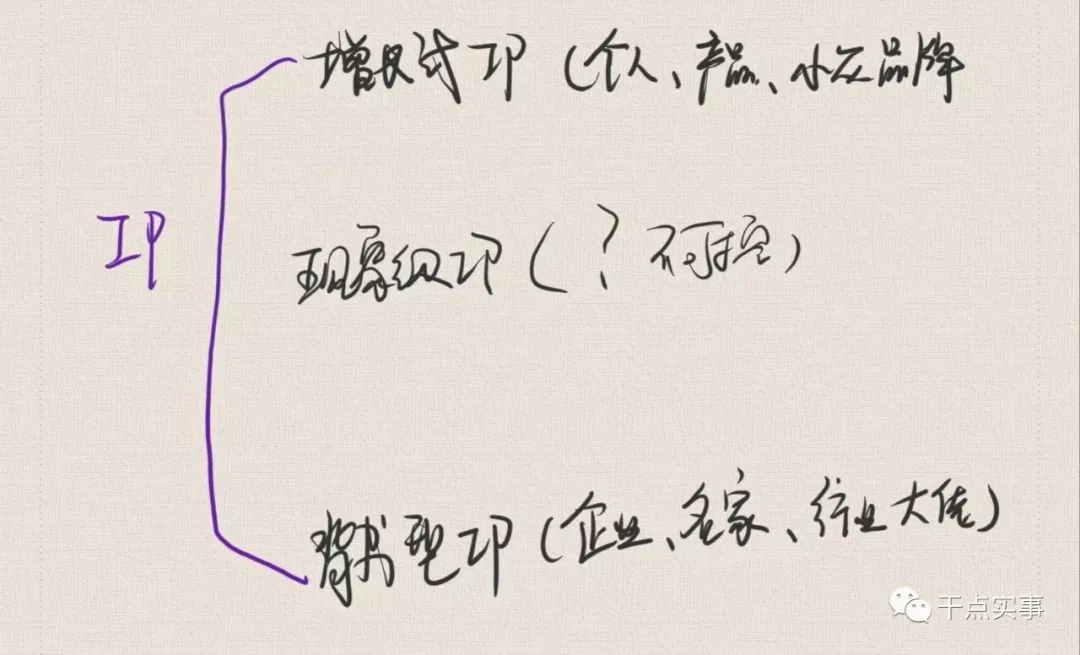 增长式IP（个人、产品、小众品牌
IP
现象级IP（？不可控）
背书型IP（企业、名家、行业大佬）
干点实事